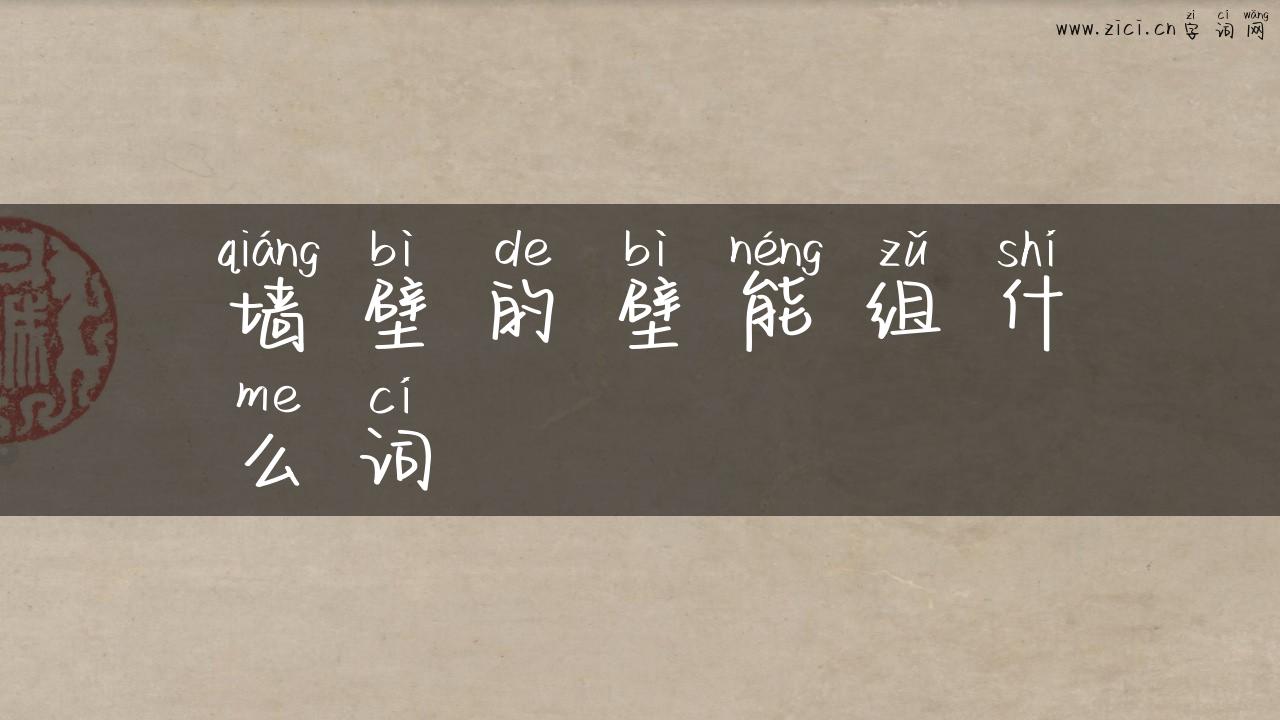 zì cí wǎng
www.zici.cn 字词网
qiáng bì de bì néng zǔ shí
墙壁的壁能组什
me cí
么词